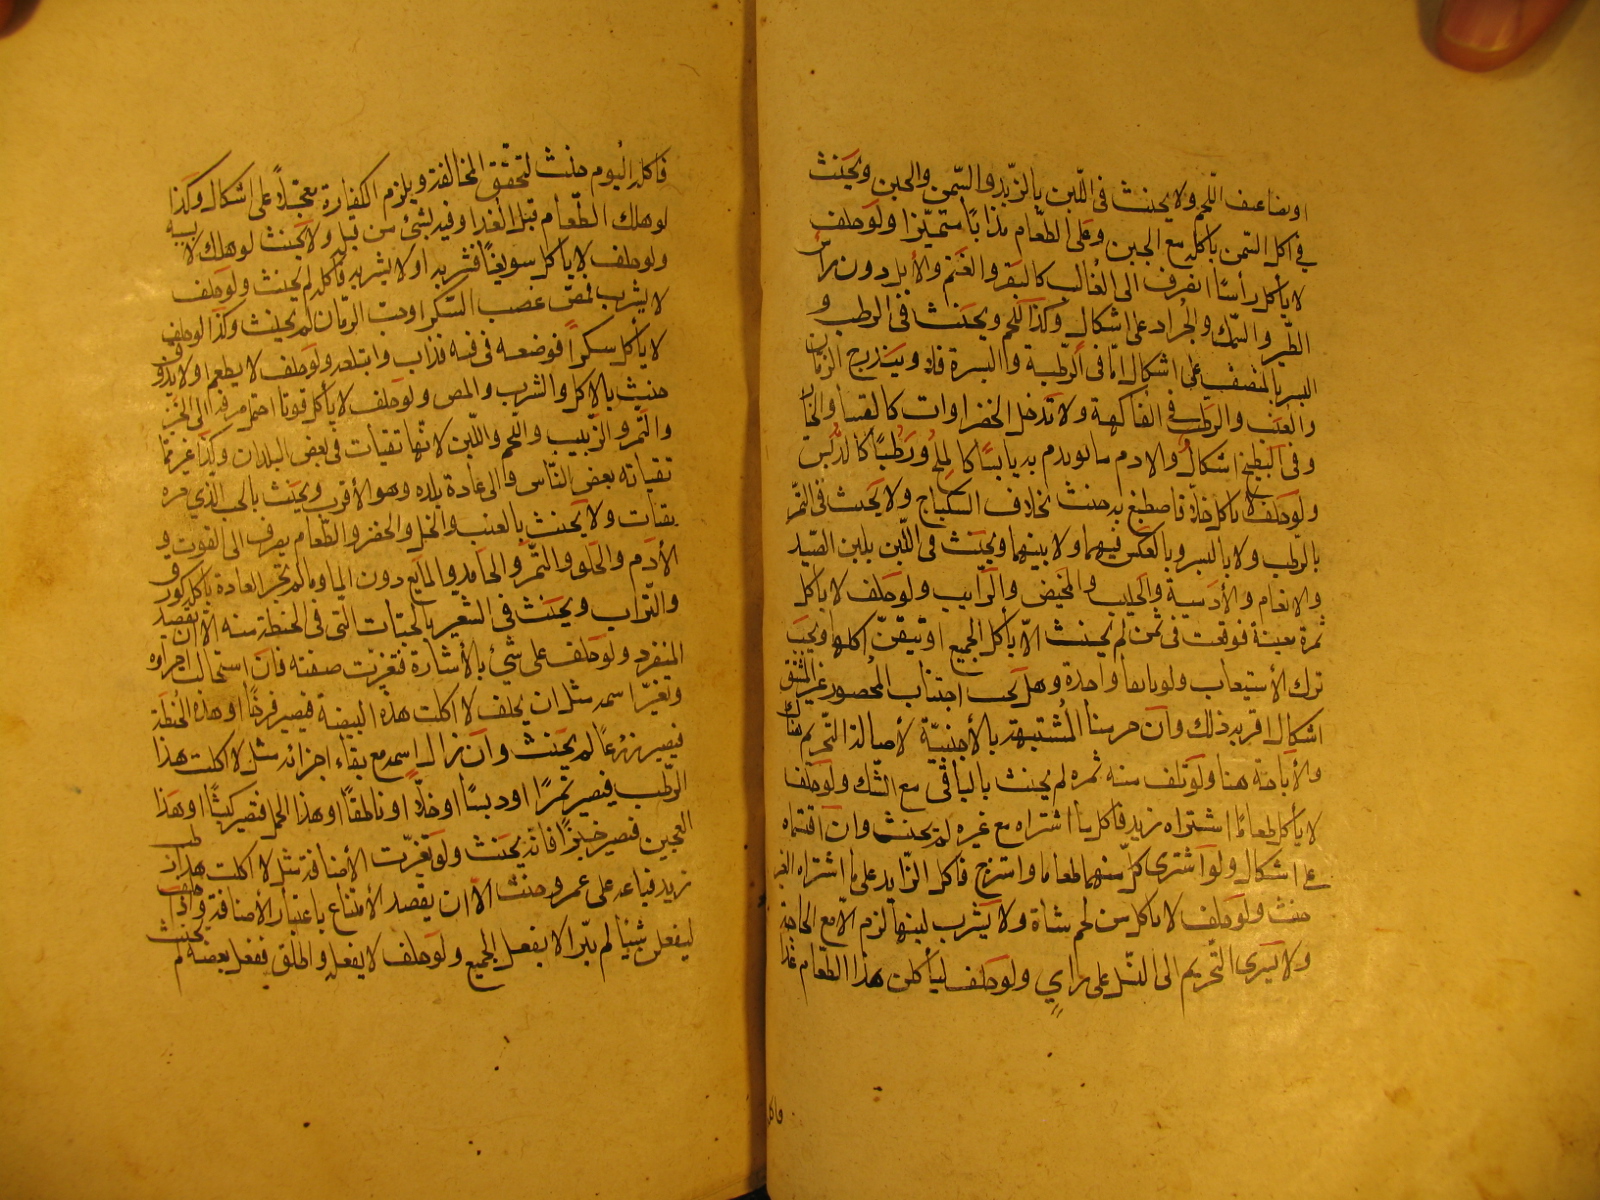 او بضاعف اللحم ولا يحنث فى اللبن بالزبد والسمن والجبن ويحنث
فى اكل السمن باكله مع الجبن وعلى الطعام مذابا متميزا ولو حلف
لا ياكل رأسا انصرف الى الغالب كالبقر والغنم والابل دون رأس
الطير والسمك والجراد على اشكال وكذا اللحم ويحنث فى الرطب و
البسر بالمنصف على اشكال اما فى الرطبة والبسرة فلا ويندرج الرمان
والعنب والرطب فى الفاكهة ولا تدخل الخضراوات كالقثا والخيار
وفى البطيخ اشكال والادم ما يويدم به يابسا كالملح ورطبا كالدبس
ولو حلف لا ياكل خلا فاصطبغ به حنث بخلاف السكباج ولا يحنث فى التمر
بالرطب ولا بالبسر وبالعكس فيهما ولا بينهما ويحنث فى اللبن بلبن الصيد
والانعام والادمية والحليب والمخيض والرايب ولو حلف لا ياكل
ثمرة معينة فوقعت فى ثمر لم يحنث الا باكل الجميع او تيقن اكلها ويجب
ترك الاستيعاب ولو بابقاء واحدة وهل يجب اجتناب المحصور غير المشق
اشكال اقربه ذلك وان حرمنا المشتبهة بالاجنبية لاصالة التحريم هناك
والاباحة هنا ولو تلف منه ثمره لم يحنث بالباقى مع الشك ولو حلف
لا ياكل طعاما اشتراه زيد فاكل ما اشتراه مع غيره لم يحنث وان اقتسماه
على اشكال ولو اشترى كل منهما طعاما وامتزج فاكل الزايد على ما اشتراه الغير
حنث ولو حلف لا ياكل من لحم شاة ولا يشرب لبنها لزم الا مع الحاجة
ولا يسرى التحريم الى النسل على راي ولو حلف لياكلن هذا الطعام غدا
فاكله اليوم حنث لتحقق المخالفة ويلزم الكفارة معجلا على اشكال وكذا
لو هلك الطعام قبل الغد او فيه بشئ من قبله ولا يحنث لو هلك لا بسببه
ولو حلف لا ياكل سويقا فشربه او لا يشربه فاكله لم يحنث ولو حلف
لا يشرب فمص قصب السكر او حب الرمان لم يحنث وكذا لو حلف
لا ياكل سكرا فوضعه فى فيه فذاب وابتلعه ولو حلف لا يطعم او لا يذوق
حنث بالاكل والشرب والمص ولو حلف لا ياكل قوتا احتمل صرفه الى الخبز
والتمر والزبيب واللحم واللبن لانها تقتات فى بعض البلدان وكذا غيره مما
تقتاته بعض الناس والى عادة بلده وهو الاقرب ويحنث بالحب الذي خبزه
يقتات ولا يحنث بالعنب والخل والخضر والطعام يصرف الى القوت و
الادم والحلو والتمر والجامد والمايع دون الماء وما لم تجر العادة باكله كورق
والتراب ويحنث فى الشعير بالحبات التى فى الحنطة منه الا ان يقصد
المنفرد ولو حلف على شئ بالاشارة فتغيرت صفته فان استحالت اجزاوه
وتغير اسمه مثل ان يحلف لا اكلت هذه البيضة فيصير فرخا او هذه الحنطة
فيصير زرعا لم يحنث وان زال اسمه مع بقاء اجزائه مثل لا اكلت هذا
الرطب فيصير تمرا او دبسا او خلا او ناطفا او هذا الحمل فيصير كبشا او هذا
العجين فيصير خبزا فانه يحنث ولو تغيرت الاضافة مثل لا اكلت هذا لعبد
زيد فباعه على عمرو حنث الا ان يقصد الامتناع باعتبار الاضافة واذا حلف
ليفعلن شيئا لم يبر الا بفعل الجميع ولو حلف لا يفعله واطلق ففعل بعضه لم يحنث